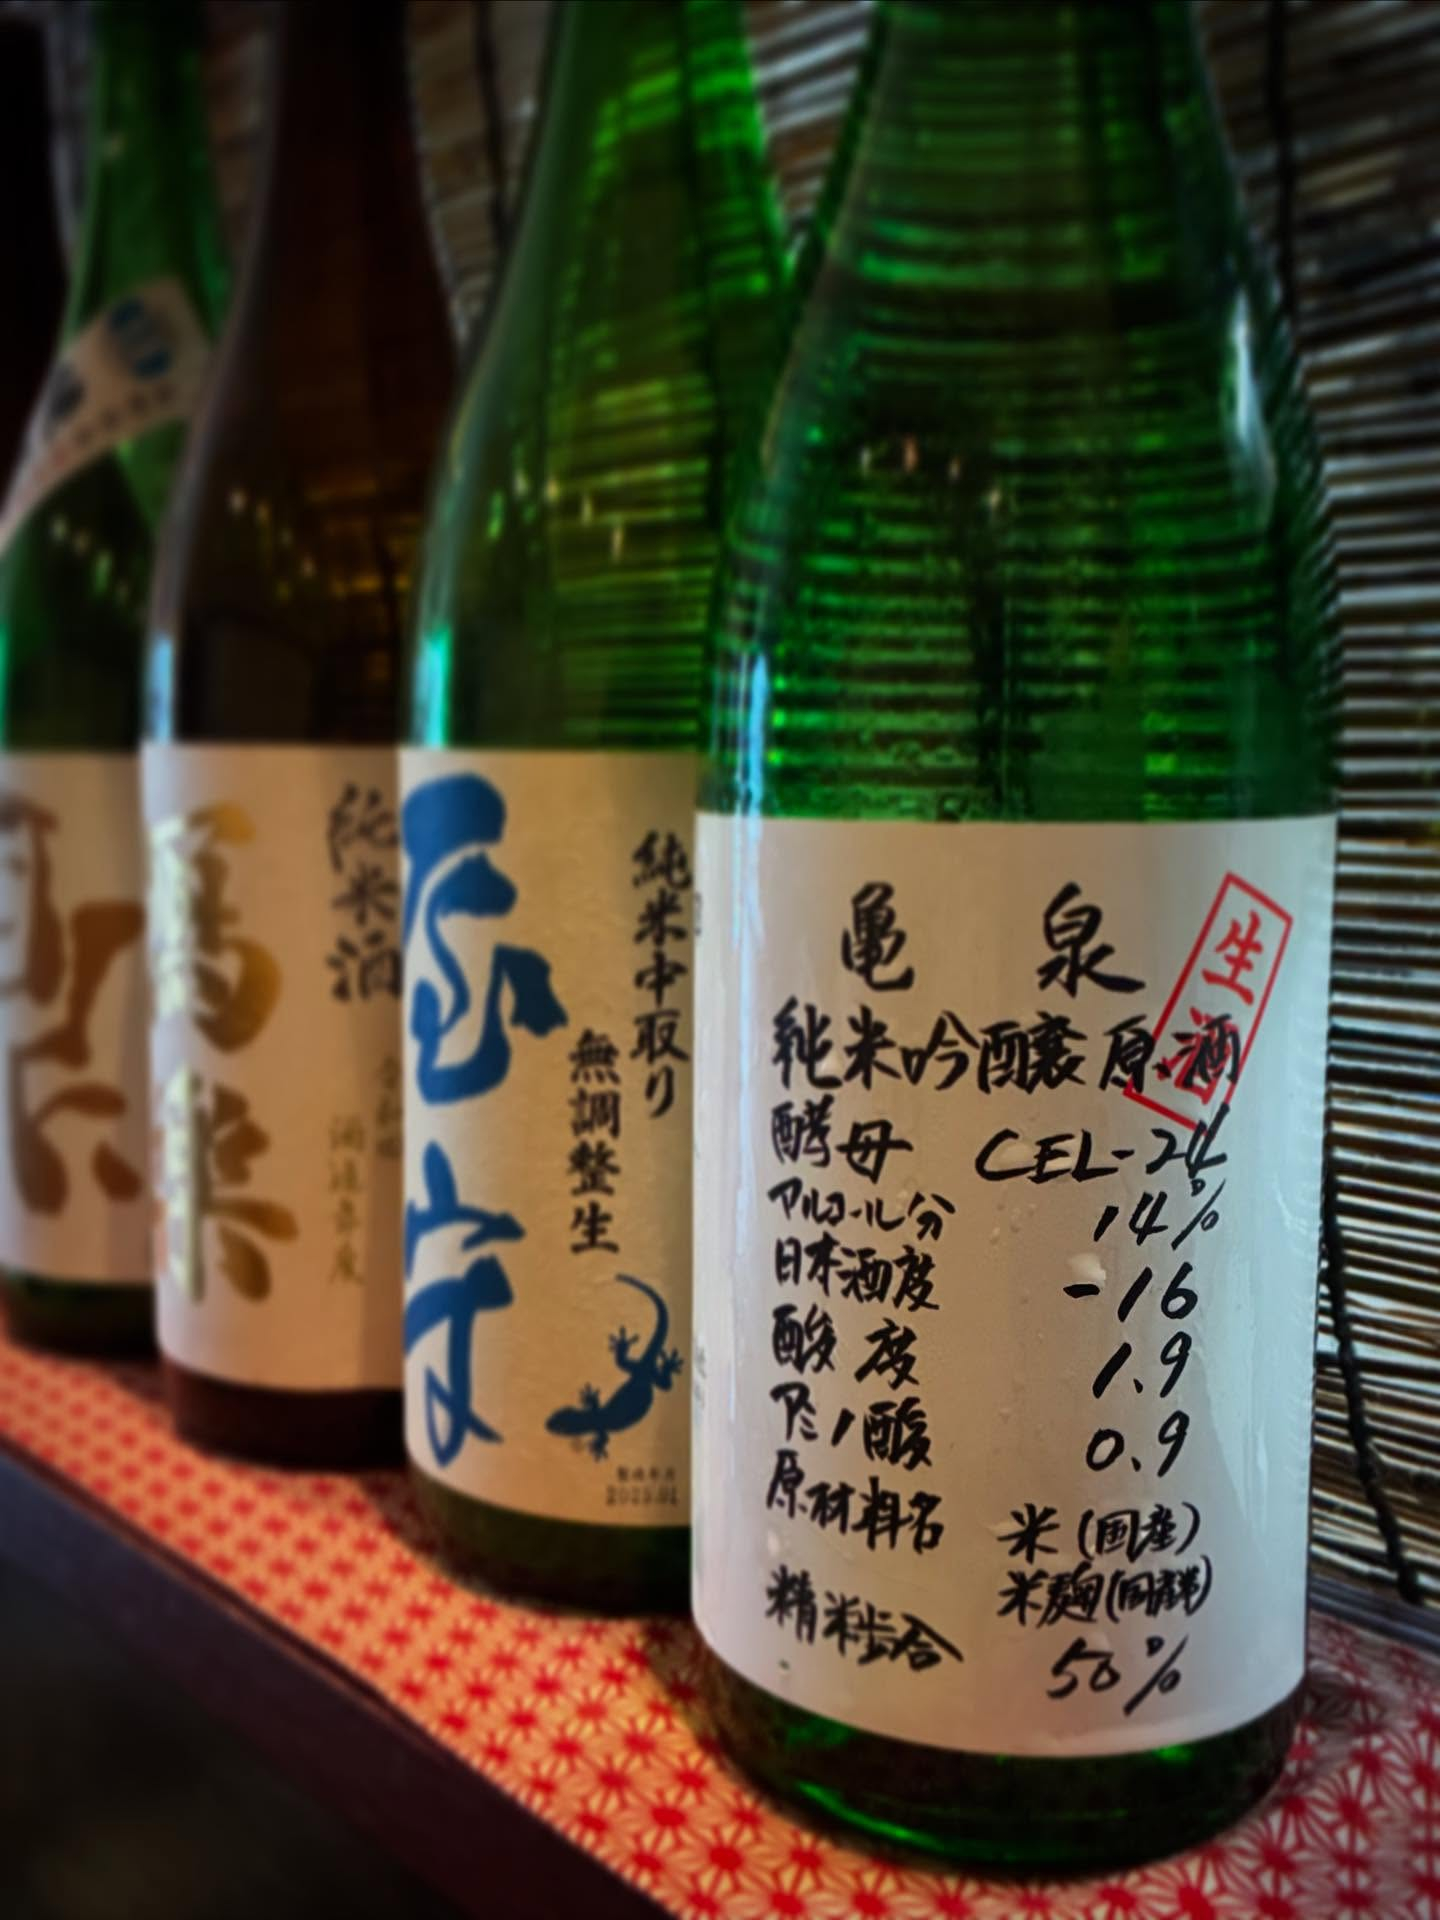 亀 泉
生酒
純米吟醸原酒
酵母 CEL-24
アルコール分 14%
日本酒度 -16
酸度 1.9
アミノ酸 0.9
原材料名 米(国産)
米麹(国産米)
精米歩合 50%
純米中取り
無調整生
屋守
純米酒
寫樂